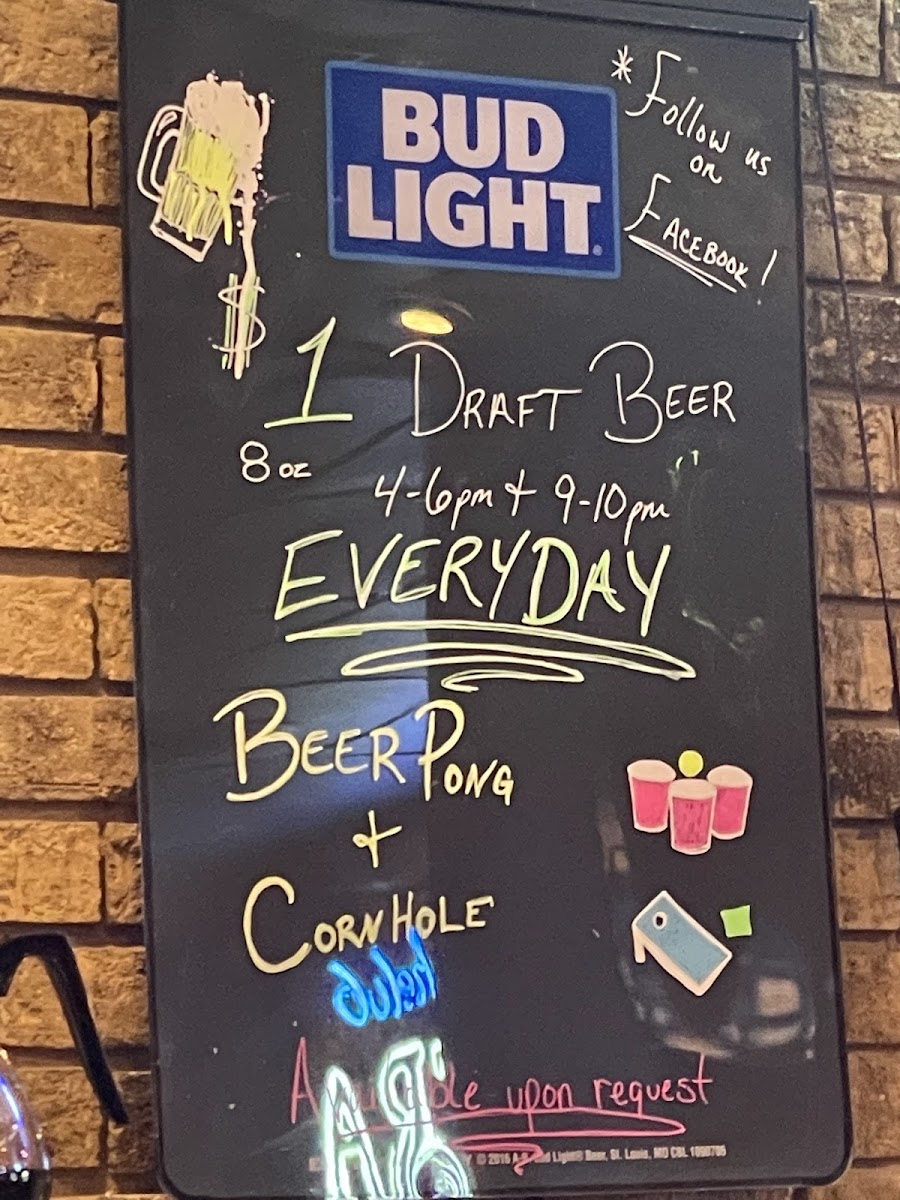 BUD
LIGHT
* Follow us
on
FACEBOOK!
$1 DRAFT BEER
8 oz
4-6pm + 9-10pm
EVERYDAY
BEER PONG
+
CORN HOLE
Available upon request
© 2016 Light® Beer, St. Louis, MO